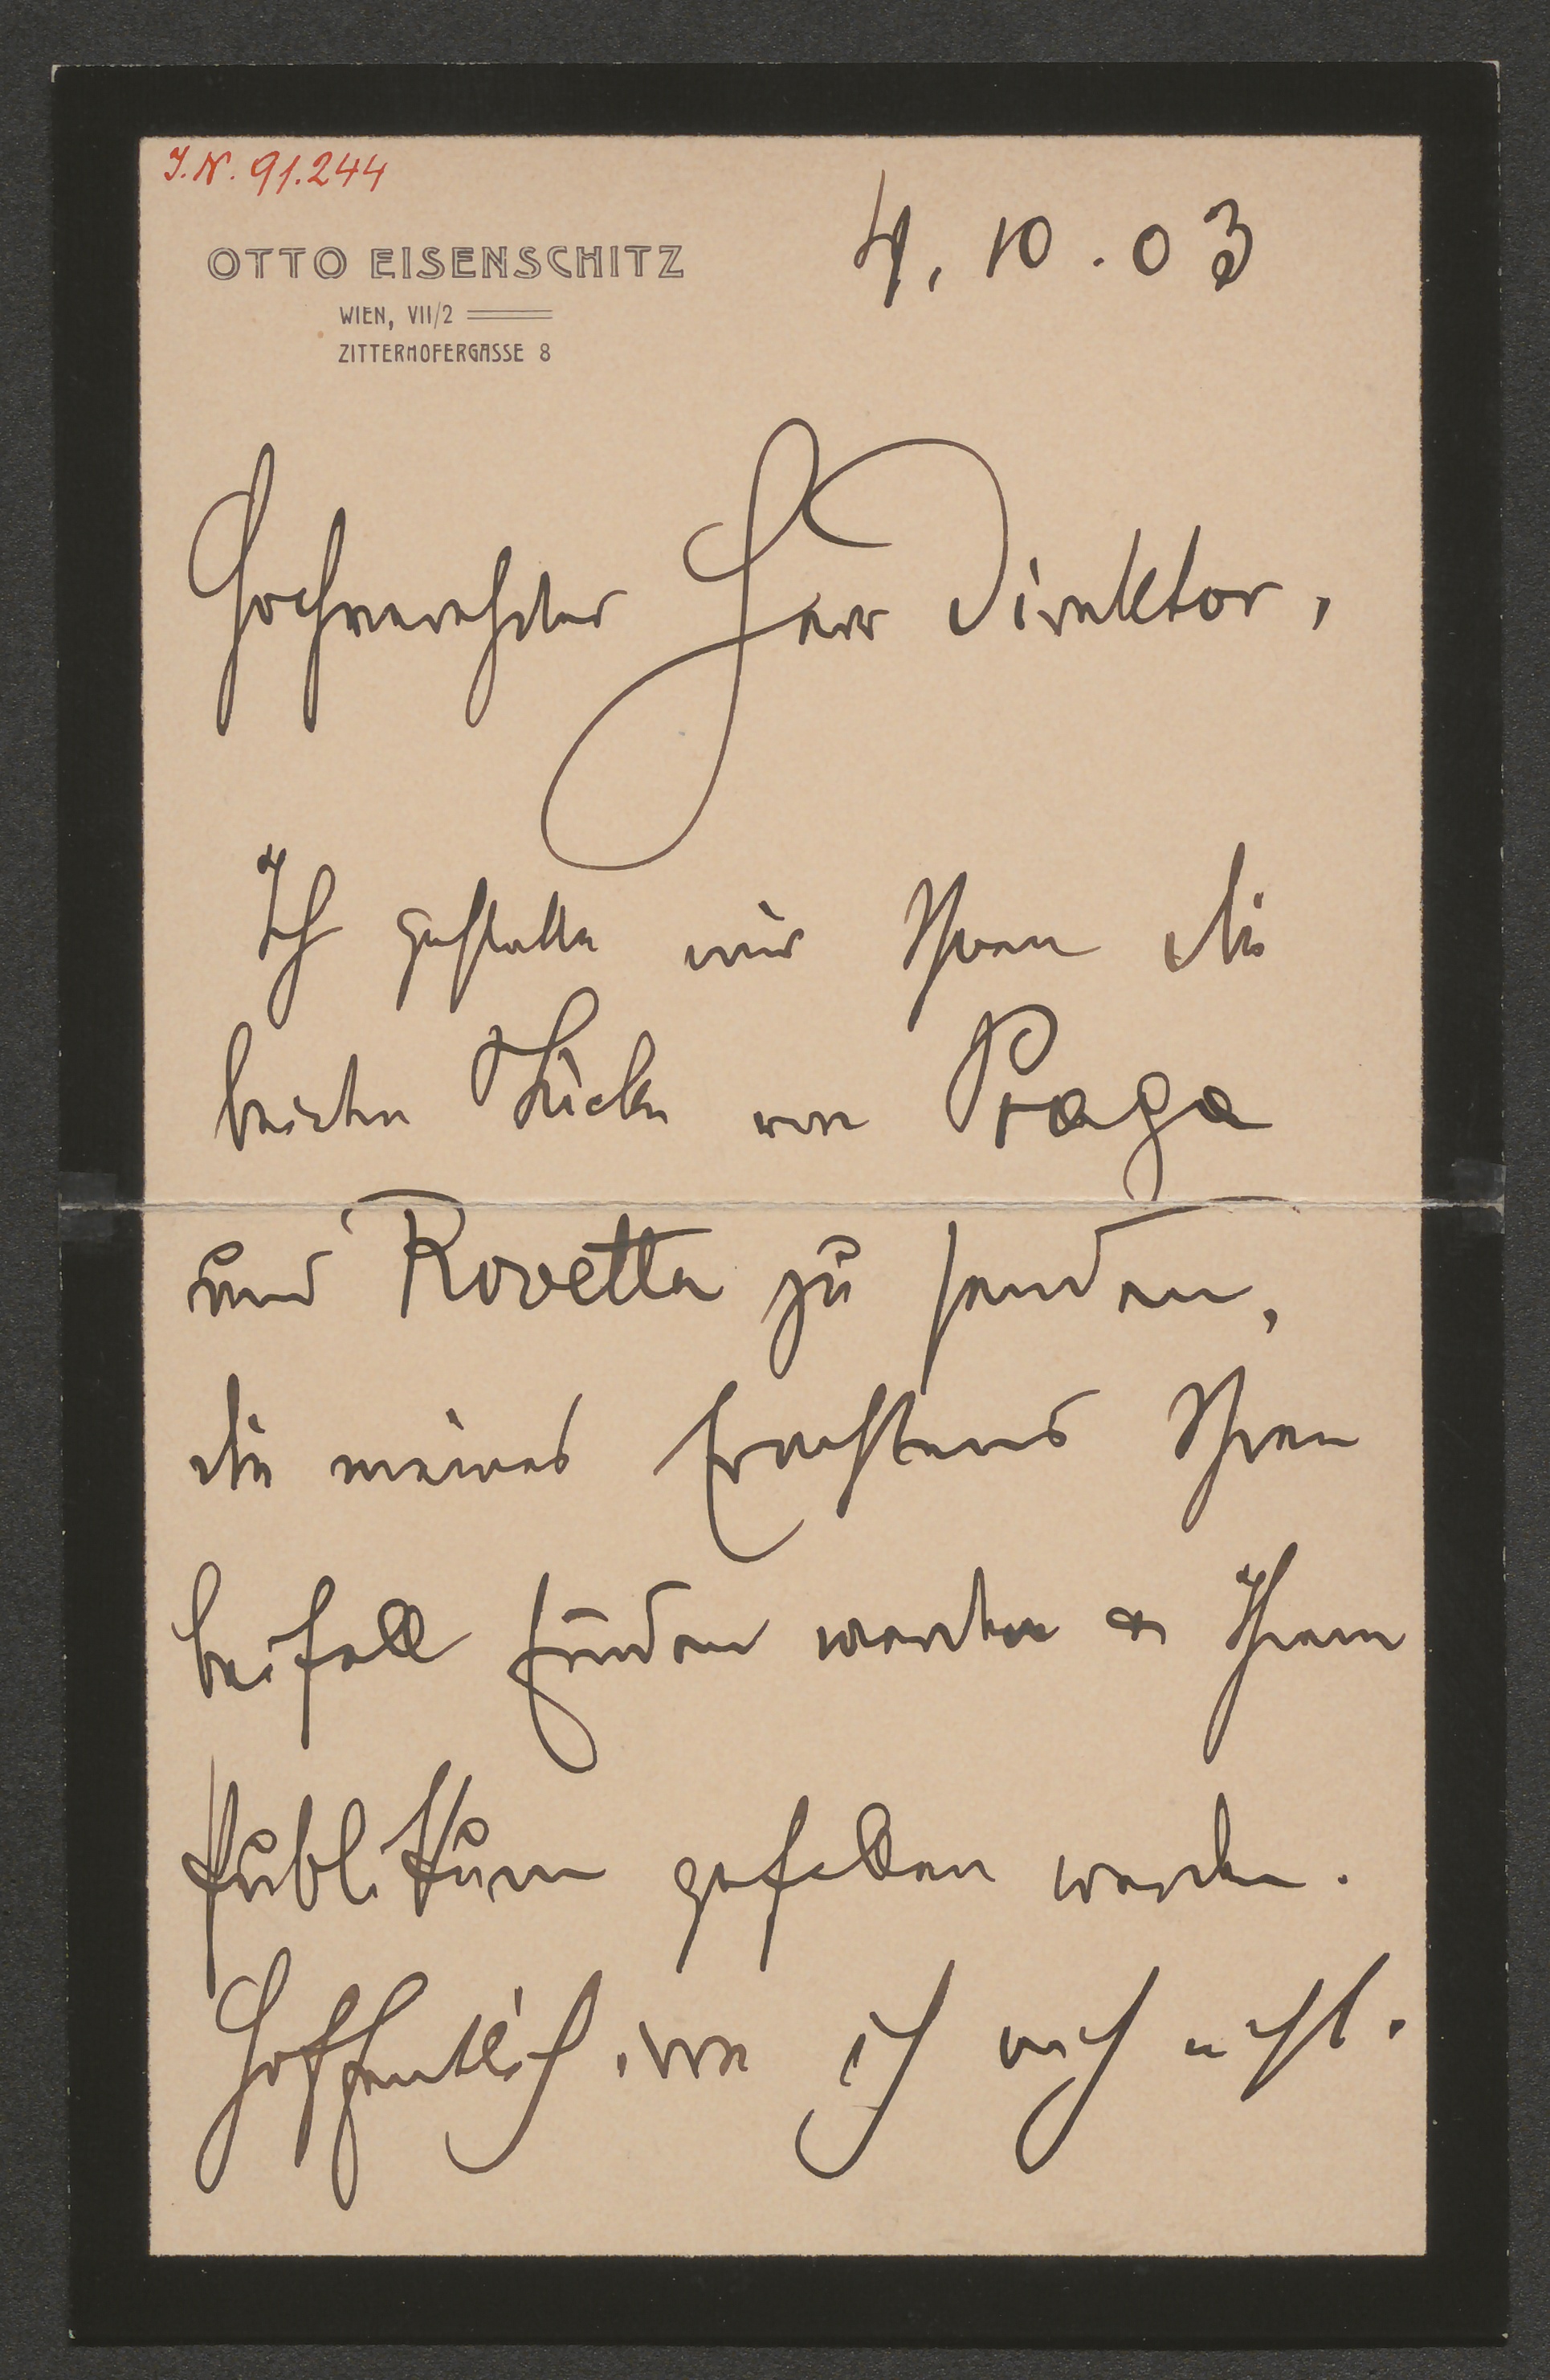 J.N. 91.244
OTTO EISENSCHITZ
WIEN, VII/2
ZITTERHOFERGASSE 8
4. 10. 03
Hochverehrter Herr Direktor,
Ich gestatte mir Ihnen die
beiden Stücke von Praga
und Rovetta zu senden,
die meines Erachtens Ihren
beifall finden werden & Ihrem
Publikum gefallen werden.
Hoffentlich irre ich mich nicht.